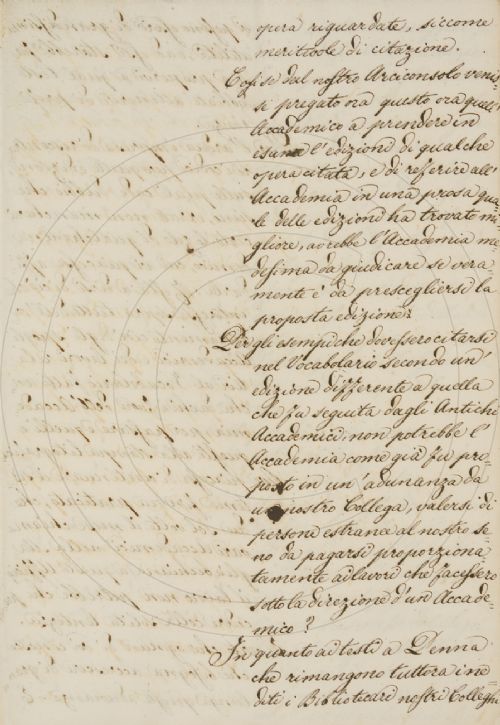 opera riguardate, siccome
meritevole di citazione.
E così se dal nostro Arciconsolo venis=
si pregato ora questo ora quell'
Accademico a prendere in
esame l'edizioni di qualche
opera citata, e di referire all'
Accademia in una prosa qua=
le delle edizioni ha trovato mi=
gliore, avrebbe l'Accademia me
desima da giudicare se vera
mente è da prescegliersi la
proposta edizione?
Per gli esempi che dovessero citarsi
nel Vocabolario secondo un'
edizione differente a quella
che fu seguita dagli Antichi
Accademici, non potrebbe l'
Accademia come già fu pro=
posto in un'adunanza da
un nostro Collega, valersi di
persone estranee al nostro se
no da pagarsi proporziona
tamente ai lavori che facessero
sotto la direzione d'un Accade=
mico?
In quanto ai testi a Penna
che rimangono tuttora ine=
diti i Bibliotecari nostri Colleghi